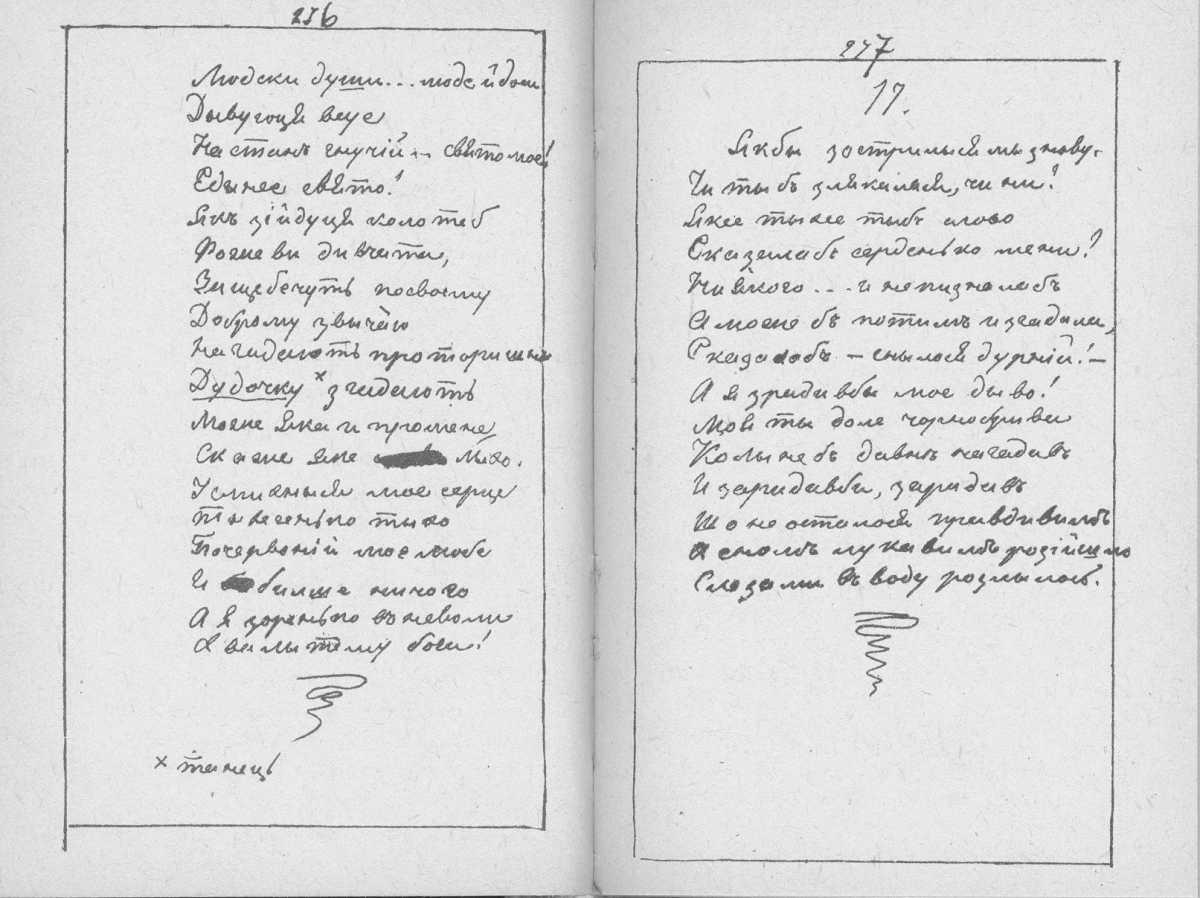 236
Людски души... моде й доси
Дывуюця веце
На станъ гнучій — свято мое!
Едынее свято!
Якъ зійдуця коло тебе
Рожеви дивчата,
Защебечуть по своему
Доброму звычаю
Нагадають про торишни
Дудочку × згадають
Може яка и про мене
Скаже яке лихо.
Усмихныся мое серце
тыхесенько тыхо
Почервоній мое любе
И билше ничого
А я зоренько въ неволи
Хвалытыму бога!
× танець
237
17.
Якбы зострилыся мы знову.
Чи ты бъ злякалася, чи ни?
Якее тыхее ты бъ слово
Сказала бъ серденько мени?
Ниякого... и не пизнала бъ
А може бъ потимъ и згадала,
Сказавши — снылося дурній! —
А я зрадивбы мое дыво!
Моя ты доле чорнобрива
Колы не бъ давнѣ нагадавъ
И заридавбы, заридавъ
Шо не осталося правдивимъ
А сномъ лукавимъ розійшло
Слёзами въ воду розлылось.